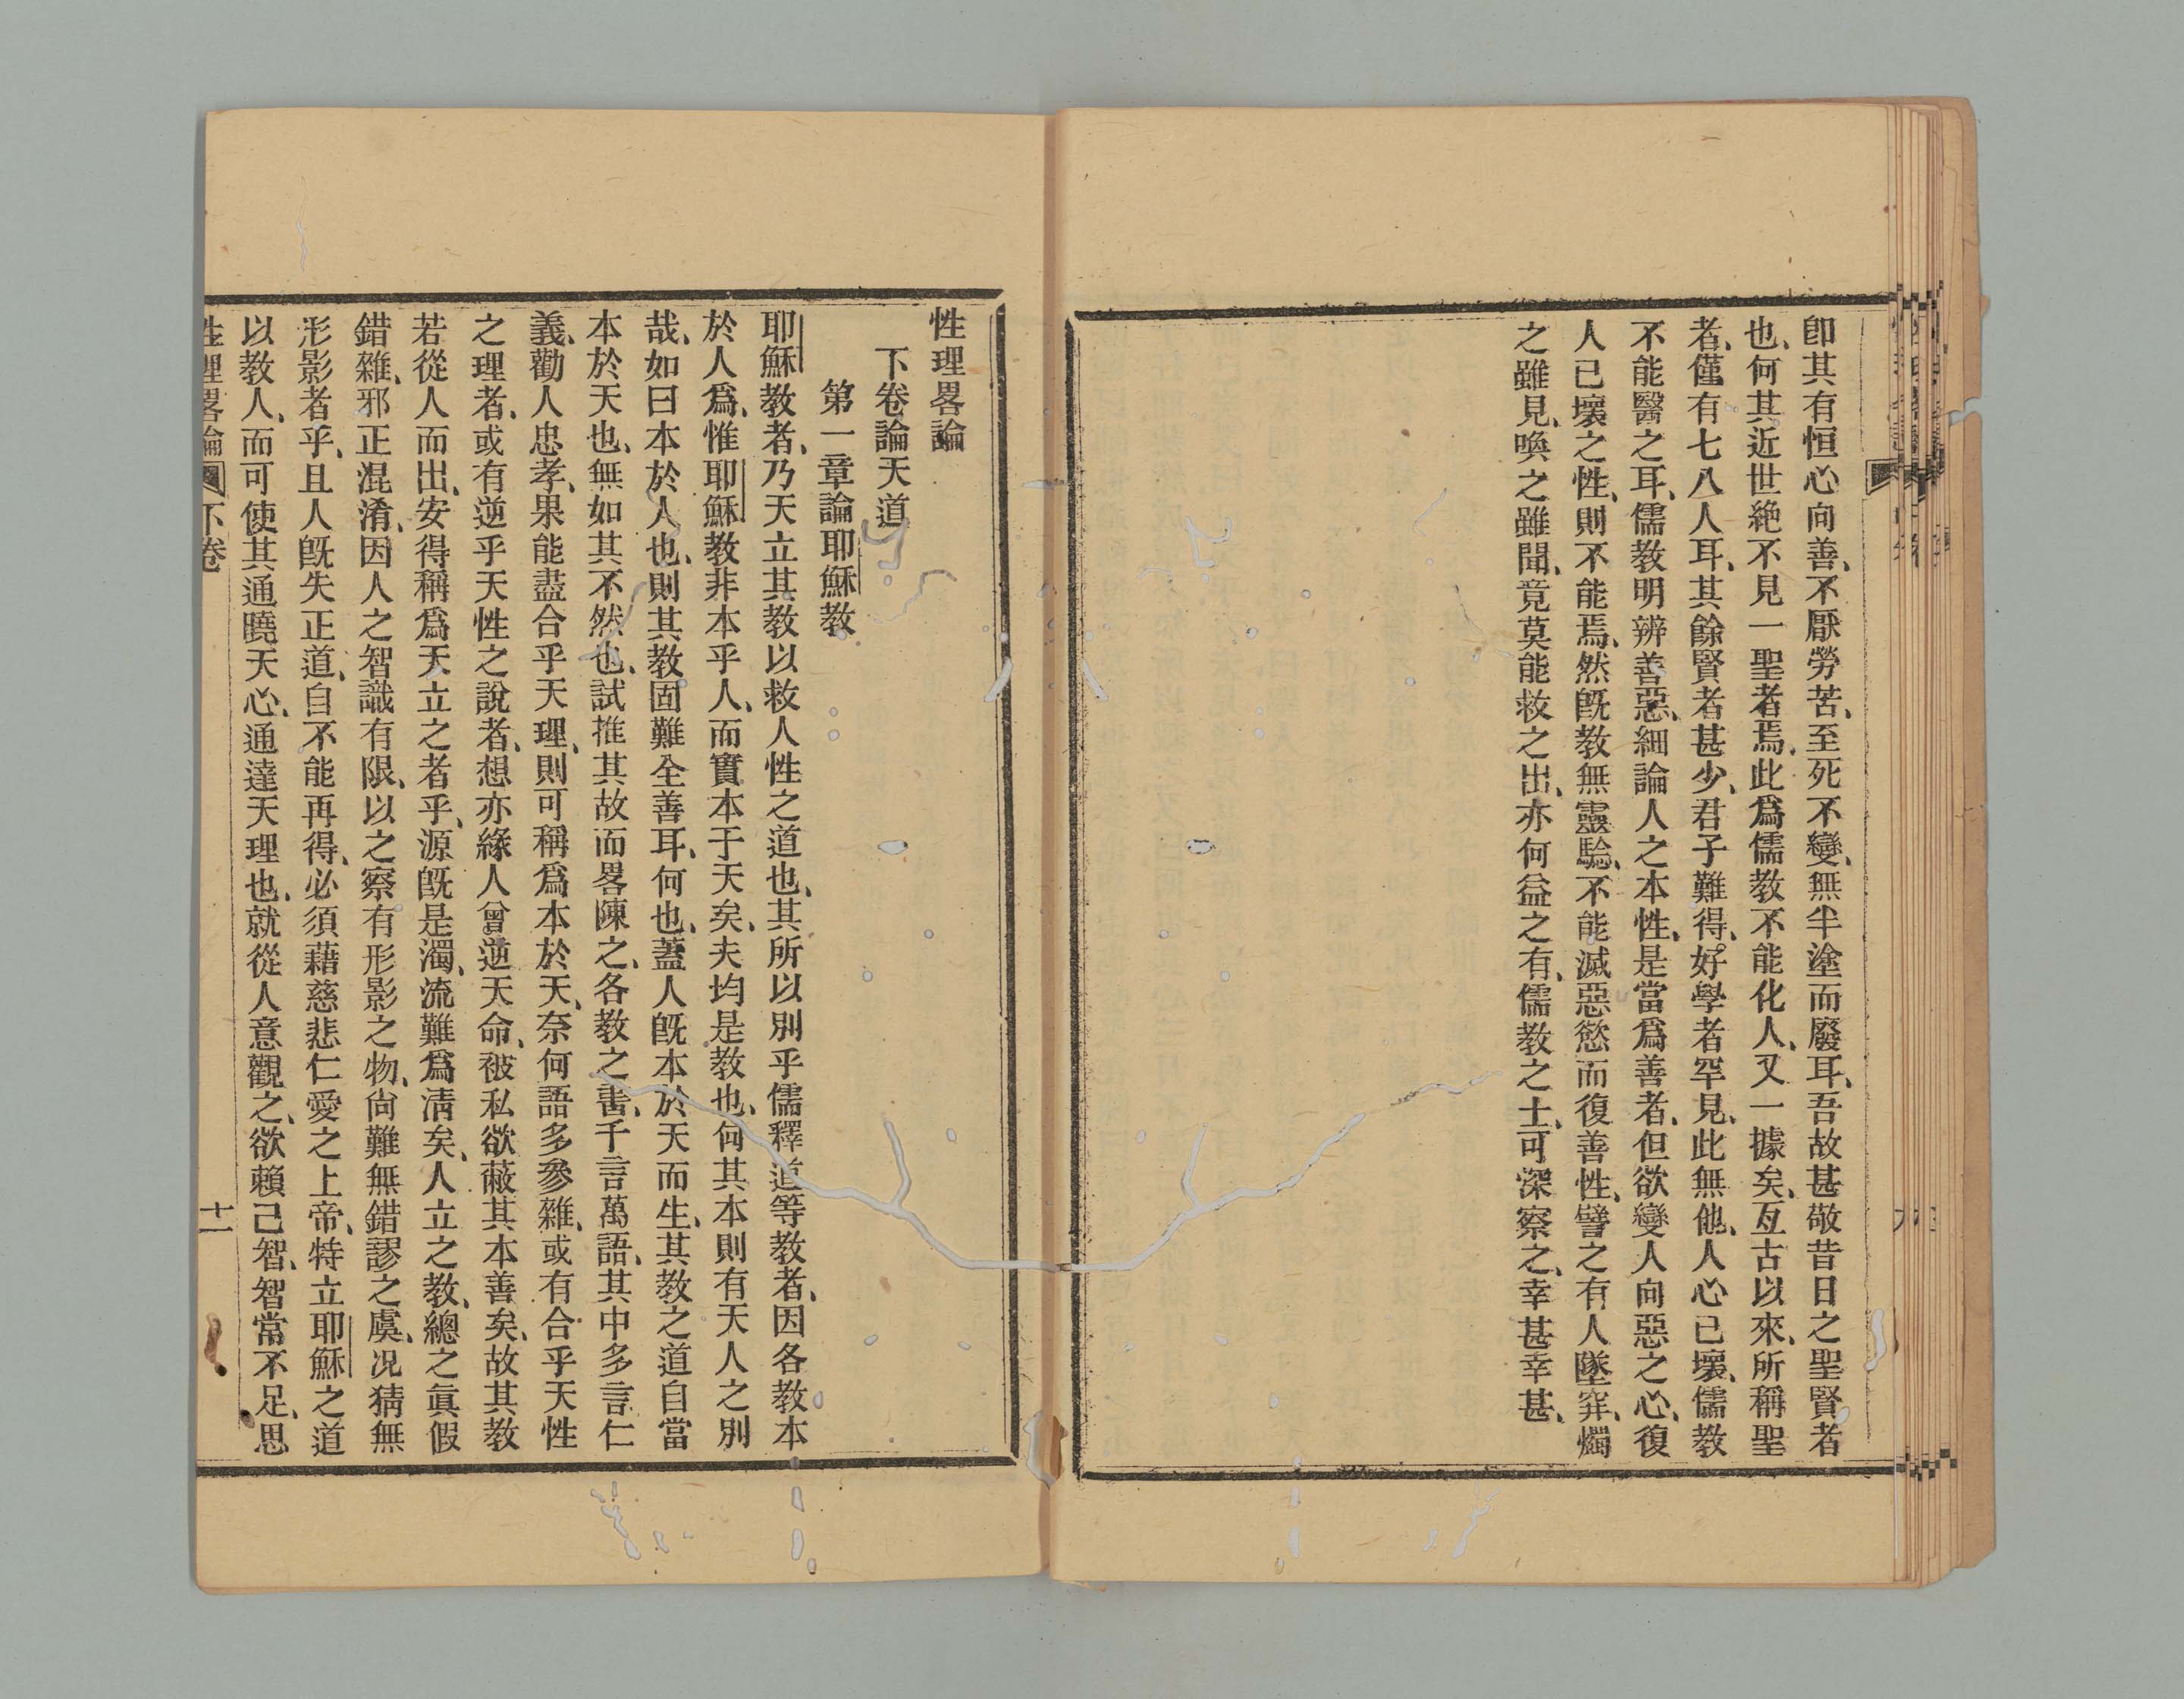 卽其有恒心向善、不厭勞苦、至死不變、無半塗而廢耳、吾故甚敬昔日之聖賢者
也、何其近世絶不見一聖者焉、此爲儒教不能化人、又一據矣、亙古以來、所稱聖
者、僅有七八人耳、其餘賢者甚少、君子難得、好學者罕見、此無他、人心已壞、儒教
不能醫之耳、儒教明辨善惡、細論人之本性、是當爲善者、但欲變人向惡之心、復
人已壞之性、則不能焉、然旣教無靈驗、不能滅惡慾而復善性、譬之有人墜穽、燭
之雖見、喚之雖聞、竟莫能救之出、亦何益之有、儒教之士、可深察之、幸甚幸甚、
性理畧論
下卷論天道
第一章論耶穌教
耶穌教者、乃天立其教以救人性之道也、其所以別乎儒釋道等教者、因各教本
於人爲、惟耶穌教非本乎人、而實本于天矣、夫均是教也、何其本則有天人之別
哉、如曰本於人也、則其教固難全善耳、何也、蓋人旣本於天而生、其教之道自當
本於天也、無如其不然也、試推其故而畧陳之、各教之書、千言萬語、其中多言仁
義、勸人忠孝、果能盡合乎天理、則可稱爲本於天、奈何語多參雜、或有合乎天性
之理者、或有逆乎天性之說者、想亦緣人曾逆天命、被私欲蔽其本善矣、故其教
若從人而出、安得稱爲天立之者乎、源旣是濁、流難爲淸矣、人立之教、總之眞假
錯雜、邪正混淆、因人之智識有限、以之察有形影之物、尙難無錯謬之虞、况猜無
形影者乎、且人旣失正道、自不能再得、必須藉慈悲仁愛之上帝、特立耶穌之道
以教人、而可使其通曉天心、通達天理也、就從人意觀之、欲賴己智、智當不足、思
性理畧論 下卷 十一